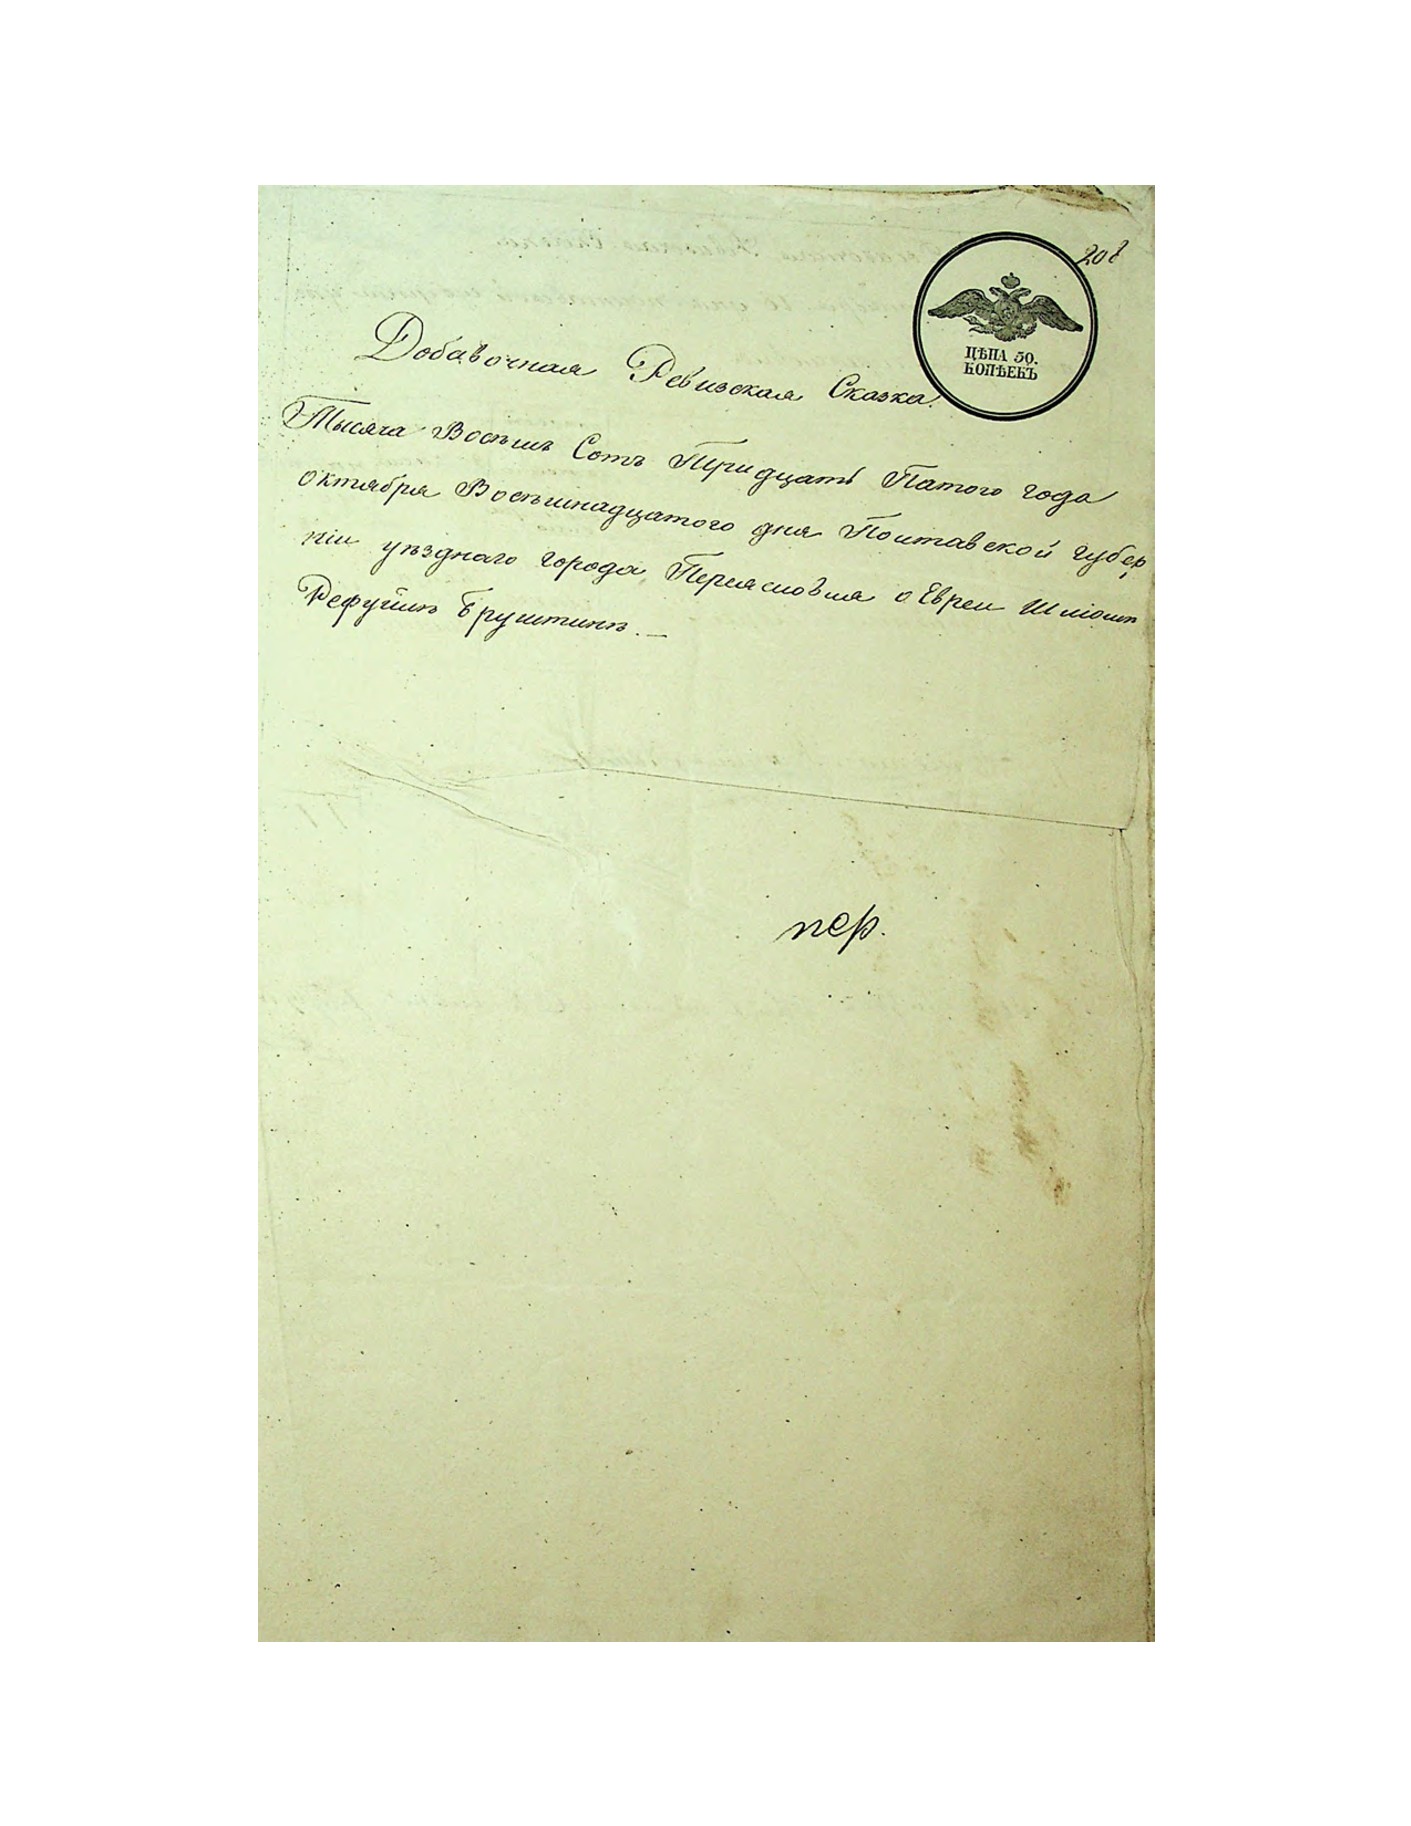 208
ЦѢНА 50.
КОПѢЕКЪ
Добавочная Ревизская Сказка.
Тысяча Восемь Сотъ Тридцать Пятого года
октября Восемнадцатого дня Полтавской губер
ніи уѣзднаго города Переясловля о Евреи Шліомѣ
Рефуимѣ Бруштинѣ.
пер.